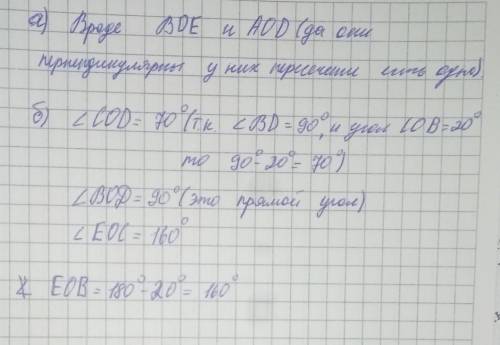 а) Вроде BDE и AOD (да они
перпендикулярны у них пересечение есть одно)
б) ∠COD = 70° (т.к. ∠BD = 90°, и угол COB = 20°
то 90° - 20° = 70°)
∠BOD = 90° (это прямой угол)
∠EOC = 160°
∡ EOB = 180° - 20° = 160°